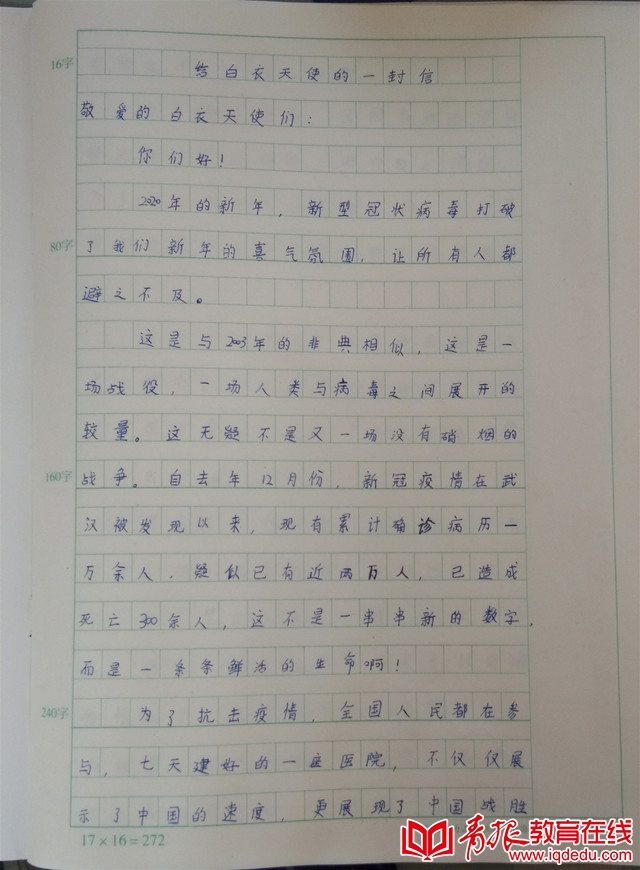 16字
给白衣天使的一封信
敬爱的白衣天使们：
你们好！
2020年的新年，新型冠状病毒打破
80字
了我们新年的喜气氛围，让所有人都
避之不及。
这是与2003年的非典相似，这是一
场战役，一场人类与病毒之间展开的
较量。这无疑不是又一场没有硝烟的
160字
战争。自去年12月份，新冠疫情在武
汉被发现以来，现有累计确诊病历一
万余人，疑似已有近两万人，已造成
死亡300余人，这不是一串串新的数字，
而是一条条鲜活的生命啊！
240字
为了抗击疫情，全国人民都在参
与，七天建好的一座医院，不仅仅展
示了中国的速度，更展现了中国战胜
17×16=272
青报教育在线
www.iqdedu.com